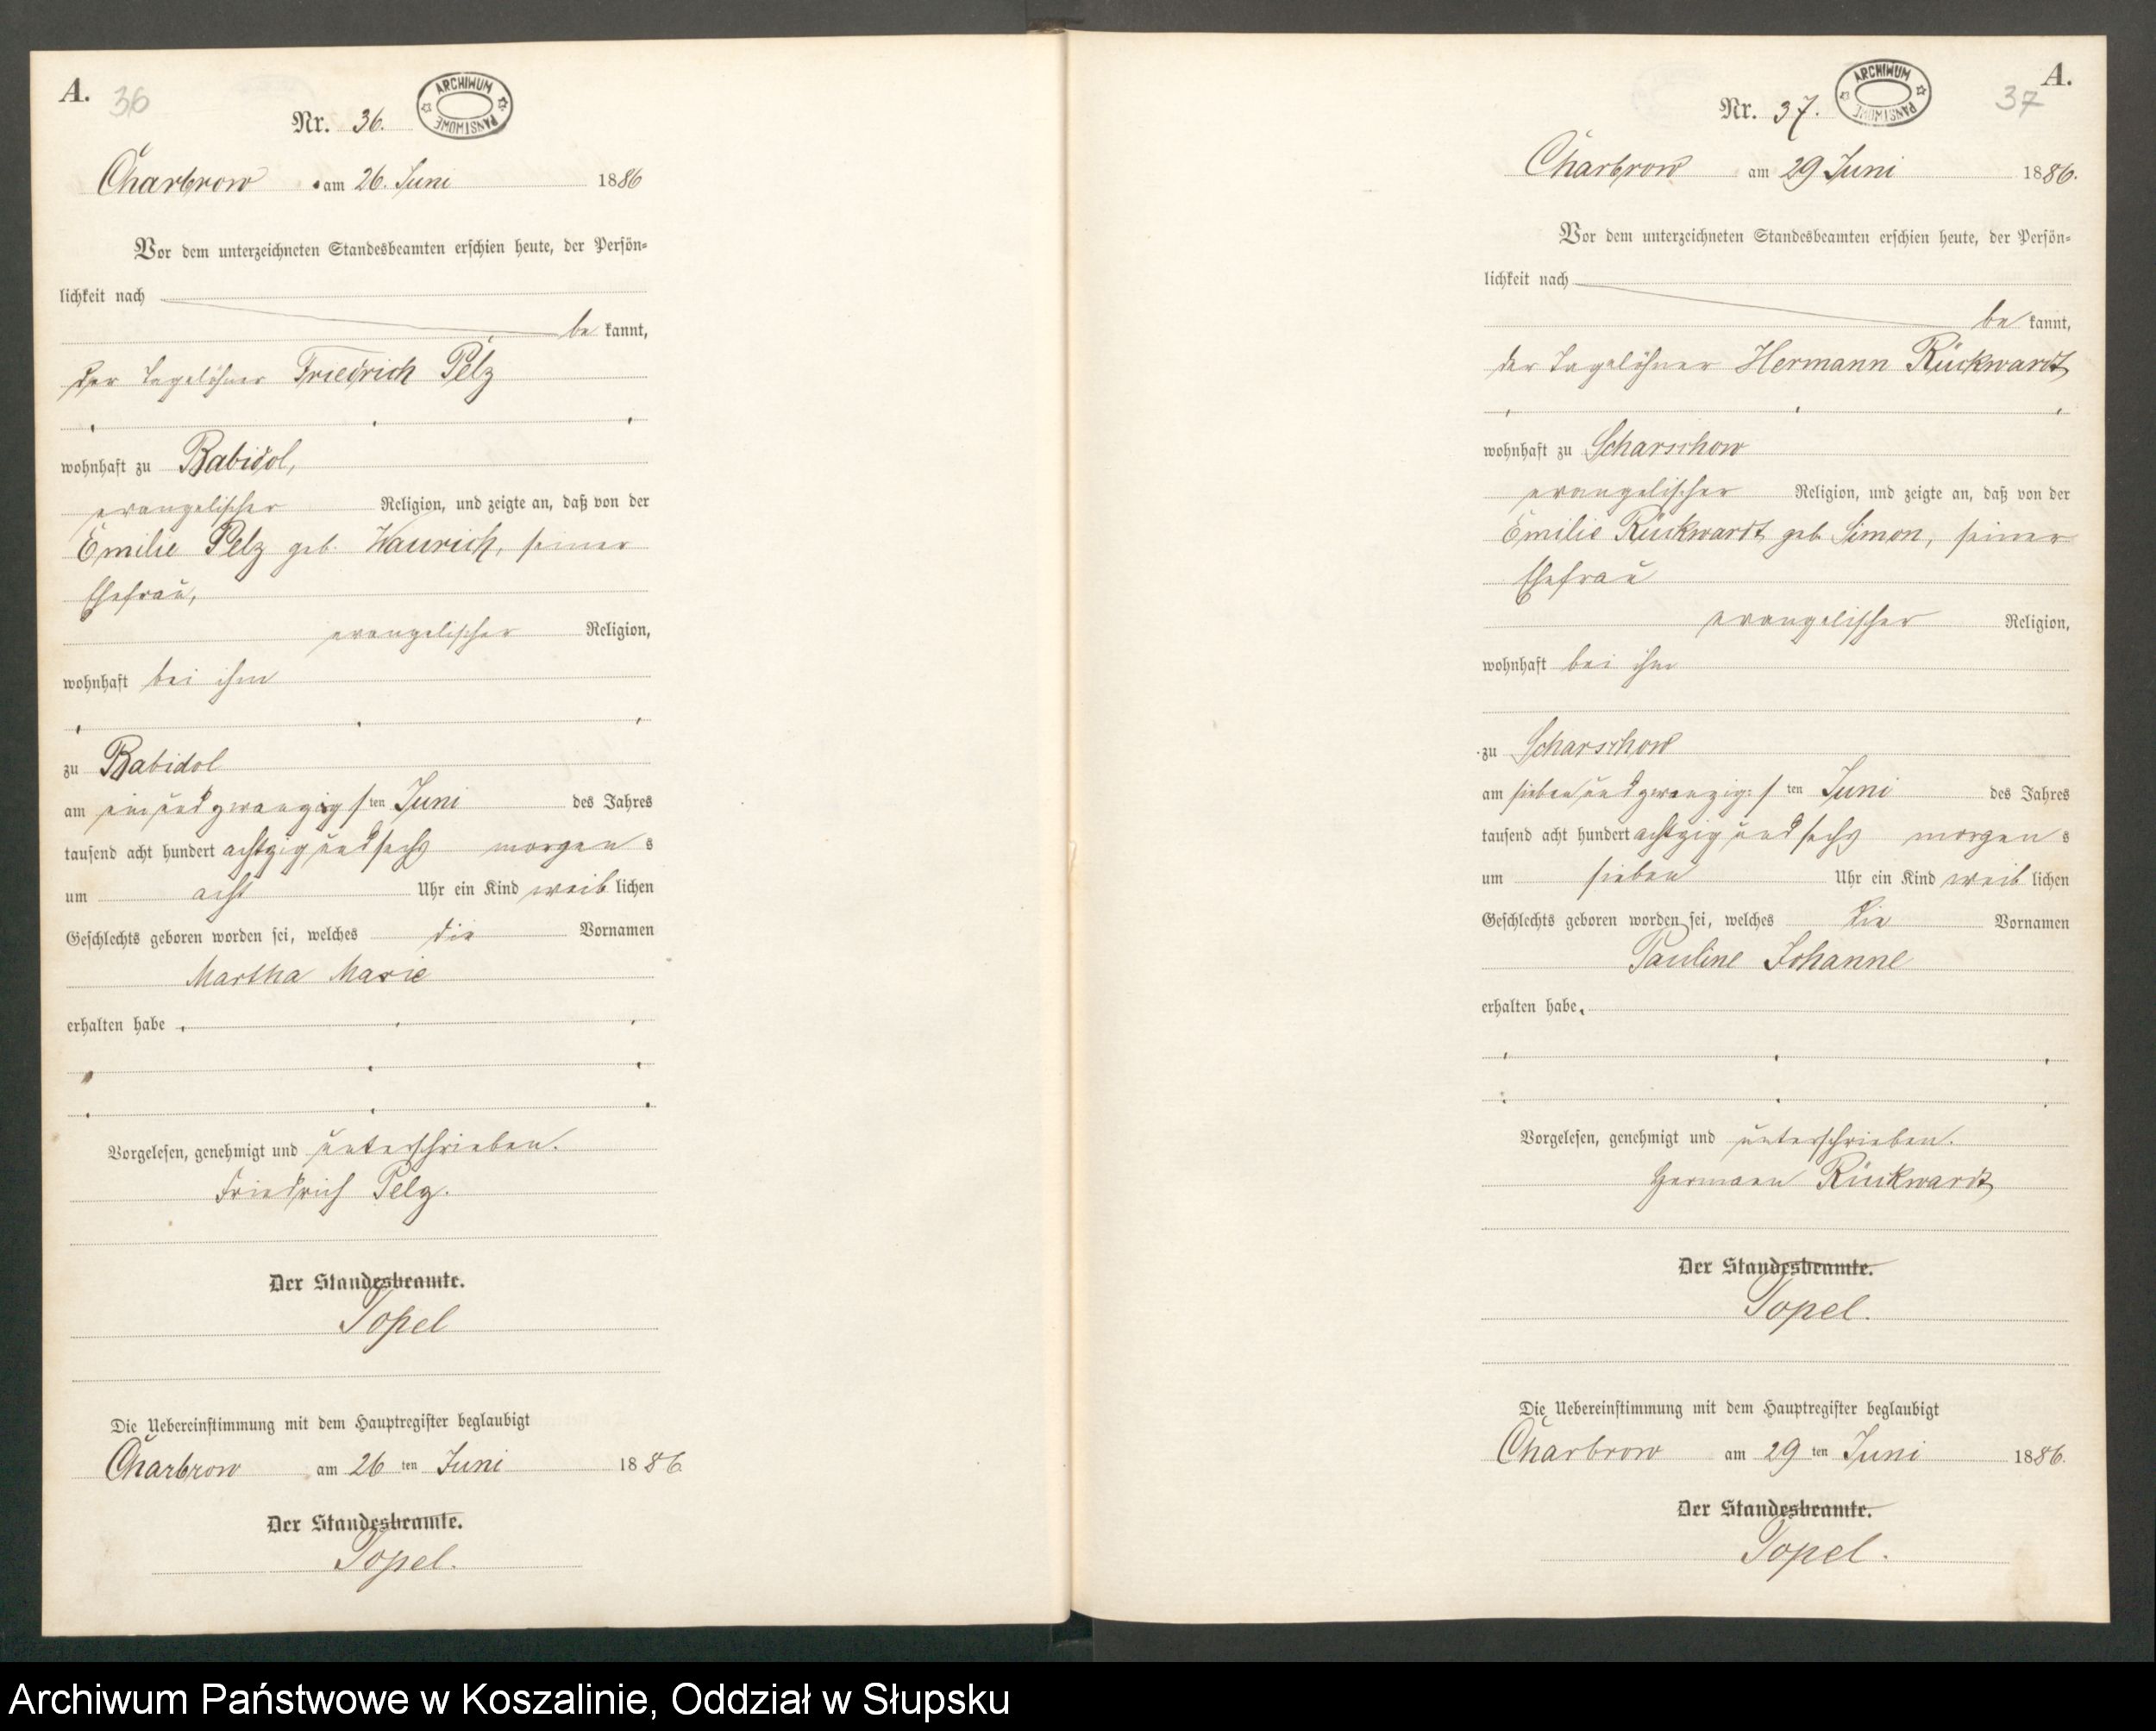 A.
36
ARCHIWUM PAŃSTWOWE
Nr. 36.
Charbrow am 26. Juni 1886
Vor dem unterzeichneten Standesbeamten erschien heute, der Persön-
lichkeit nach
be kannt,
der Tagelöhner Friedrich Pelz
wohnhaft zu Babidol,
evangelischer Religion, und zeigte an, daß von der
Emilie Pelz geb. Haurich, seiner
Ehefrau,
evangelischer Religion,
wohnhaft bei ihm
zu Babidol
am einundzwanzigsten Juni des Jahres
tausend acht hundert achtzig und sechs morgens
um acht Uhr ein Kind weiblichen
Geschlechts geboren worden sei, welches die Vornamen
Martha Marie
erhalten habe
Vorgelesen, genehmigt und unterschrieben.
Friedrich Pelz.
Der Standesbeamte.
Topel
Die Uebereinstimmung mit dem Hauptregister beglaubigt
Charbrow am 26 ten Juni 1886.
Der Standesbeamte.
Topel.
A.
37
ARCHIWUM PAŃSTWOWE
Nr. 37.
Charbrow am 29 Juni 1886.
Vor dem unterzeichneten Standesbeamten erschien heute, der Persön-
lichkeit nach
be kannt,
der Tagelöhner Hermann Rückwardt
wohnhaft zu Scharschow
evangelischer Religion, und zeigte an, daß von der
Emilie Rückwardt geb. Simon, seiner
Ehefrau
evangelischer Religion,
wohnhaft bei ihm
zu Scharschow
am siebenundzwanzigsten Juni des Jahres
tausend acht hundert achtzig und sechs morgens
um sieben Uhr ein Kind weiblichen
Geschlechts geboren worden sei, welches die Vornamen
Pauline Johanne
erhalten habe.
Vorgelesen, genehmigt und unterschrieben.
Hermann Rückwardt
Der Standesbeamte.
Topel.
Die Uebereinstimmung mit dem Hauptregister beglaubigt
Charbrow am 29 ten Juni 1886.
Der Standesbeamte.
Topel.
Archiwum Państwowe w Koszalinie, Oddział w Słupsku